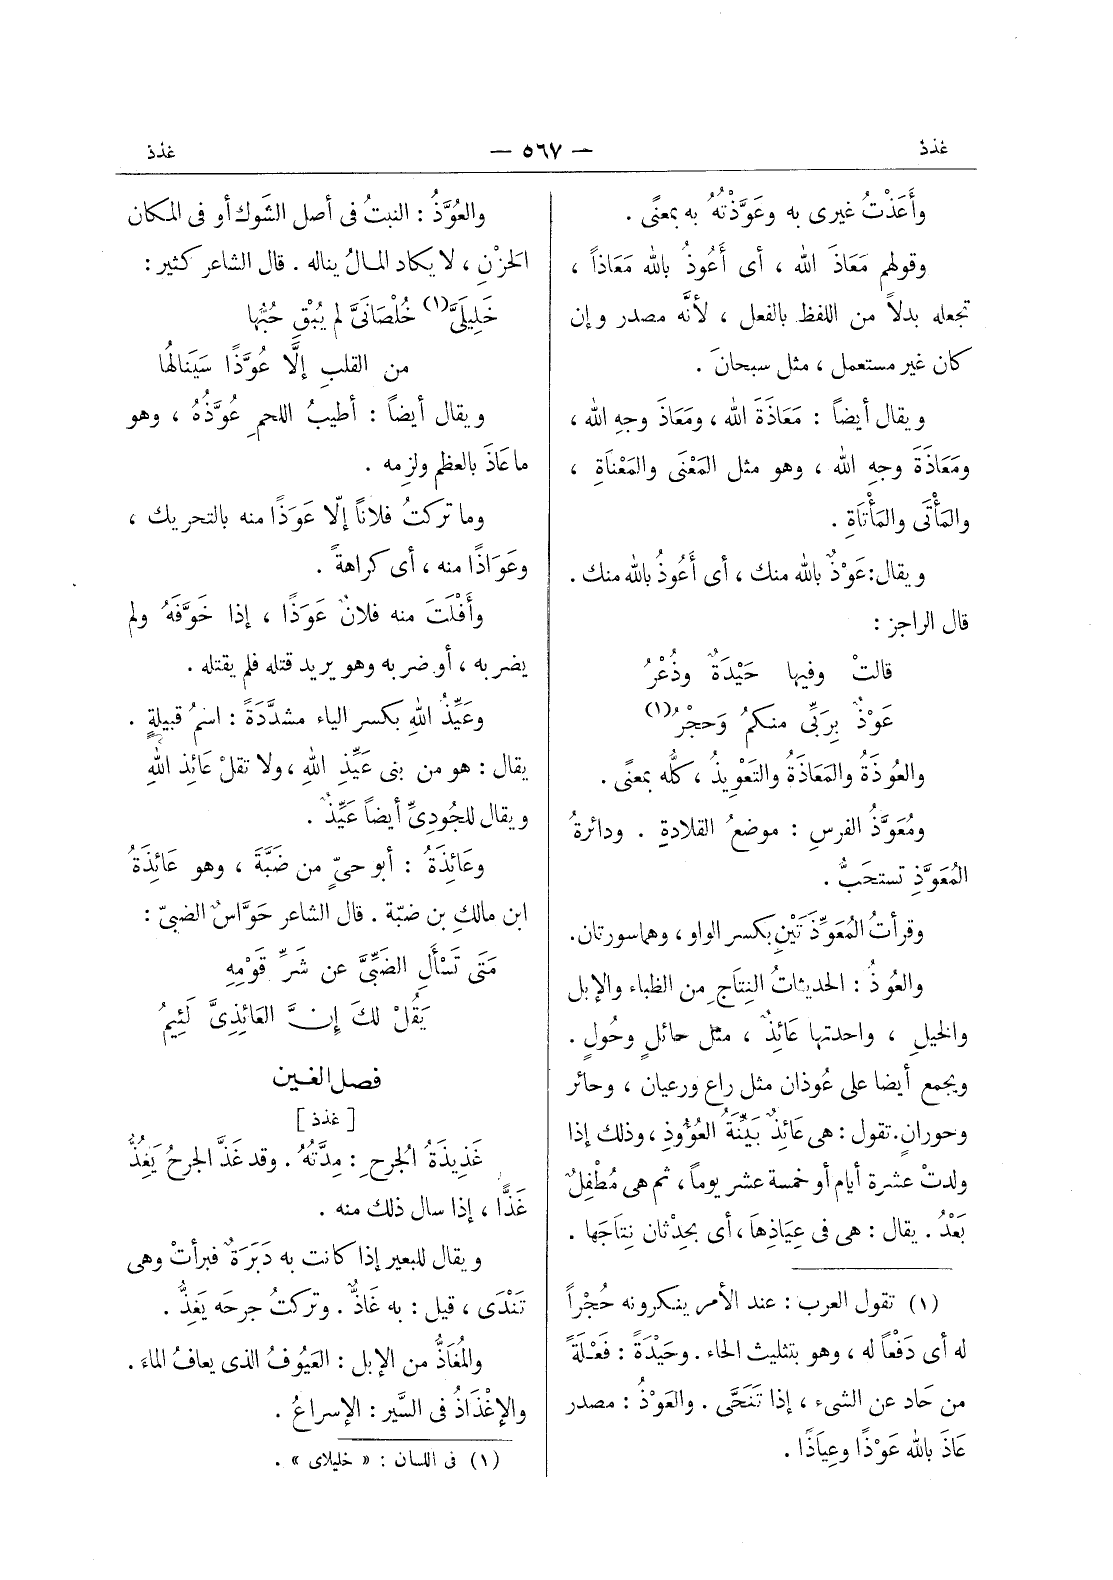 غذذ
— ٥٦٧ —
غذذ
وأَعَذْتُ غيرى به وعَوَّذْتُهُ به بمعنًى .
وقولهم مَعَاذَ الله ، أى أَعُوذُ بالله مَعَاذاً ،
تجعله بدلاً من اللفظ بالفعل ، لأنَّه مصدر وإن
كان غير مستعمل ، مثل سبحانَ .
ويقال أيضاً : مَعَاذَةَ الله ، ومَعَاذَ وجهِ الله ،
ومَعَاذَةَ وجهِ الله ، وهو مثل المَعْنَى والمَعْنَاةِ ،
والمَأْتَى والمَأْتَاةِ .
ويقال: عَوْذٌ بالله منك ، أى أَعُوذُ بالله منك .
قال الراجز :
قالتْ وفيها حَيْدَةٌ وذُعْرُ
عَوْذٌ بِرَبِّى منكمُ وَحجْرُ (١)
والعُوذَةُ والمَعَاذَةُ والتَعْوِيذُ ، كلُّه بمعنًى .
ومُعَوَّذُ الفرسِ : موضعُ القلادةِ . ودائرةُ
المُعَوَّذِ تستحَبُّ .
وقرأتُ المُعَوِّذَتَيْنِ بكسر الواو ، وهما سورتان.
والعُوذُ : الحديثاتُ النِتَاجِ من الظباء والإبل
والخيلِ ، واحدتها عَائِذٌ ، مثل حائلٍ وحُولٍ .
ويجمع أيضا على عُوذان مثل راع ورعيان ، وحائر
وحورانٍ. تقول : هى عَائِذٌ بَيِّنَةُ العُؤُوذِ ، وذلك إذا
ولدتْ عشرة أيام أو خمسة عشر يوماً ، ثم هى مُطْفِلٌ
بَعْدُ . يقال : هى فى عِيَاذِهَا ، أى بِحِدْثان نِتَاجَها .
(١) تقول العرب : عند الأمر ينكرونه حُجْراً
له أى دَفْعاً له ، وهو بتثليث الحاء . وحَيْدَةً : فَعْلَةً
من حَاد عن الشىء ، إذا تَنَحَّى . والعَوْذُ : مصدر
عَاذَ بالله عَوْذًا وعِيَاذًا .
والعُوَّذُ : النبتُ فى أصل الشَوك أو فى المكان
الحَزْنِ ، لا يكاد المالُ يناله . قال الشاعر كثير :
خَلِيلَىَّ (١) خُلْصَانَىَّ لم يُبْقِ حُبُّها
من القلبِ إلَّا عُوَّذًا سَيَنَالُهَا
ويقال أيضاً : أطيبُ اللحمِ عُوَّذُهُ ، وهو
ما عَاذَ بالعظم ولزِمه .
وما تركتُ فلاناً إلّا عَوَذًا منه بالتحريك ،
وعَوَاذًا منه ، أى كراهةً .
وأَفْلَتَ منه فلانٌ عَوَذًا ، إذا خَوَّفَهُ ولم
يضربه ، أو ضربه وهو يريد قتله فلم يقتله .
وعَيِّذُ اللهِ بكسر الياء مشدَّدَةً : اسمُ قبيلةٍ .
يقال : هو من بنى عَيِّذِ اللهِ ، ولا تقلْ عَائِذ اللهِ
ويقال للجُودِىِّ أيضاً عَيِّذٌ .
وعَائِذَةُ : أبو حىٍّ من ضَبَّةَ ، وهو عَائِذَةُ
ابن مالكِ بن ضبّة . قال الشاعر حَوَّاسٌ الضبىّ :
مَتَى تَسْأَلِ الضَبِّىَّ عن شَرِّ قَوْمِهِ
يَقُلْ لكَ إِنَّ العَائذِىَّ لَئِيمُ
فصل الغين
[ غذذ ]
غَذِيذَةُ الجُرحِ : مِدَّتُهُ . وقد غَذَّ الجرحُ يَغِذُّ
غَذًّا ، إذا سال ذلك منه .
ويقال للبعير إذا كانت به دَبَرَةٌ فبرأتْ وهى
تَنْدَى ، قيل : به غَاذٌّ . وتركتُ جرحَه يَغِذُّ .
والمُغَاذُّ من الإبل : العَيُوفُ الذى يعافُ الماءَ .
والإِغْذَاذُ فى السَّير : الإسراعُ .
(١) فى اللسان : « خليلاى » .